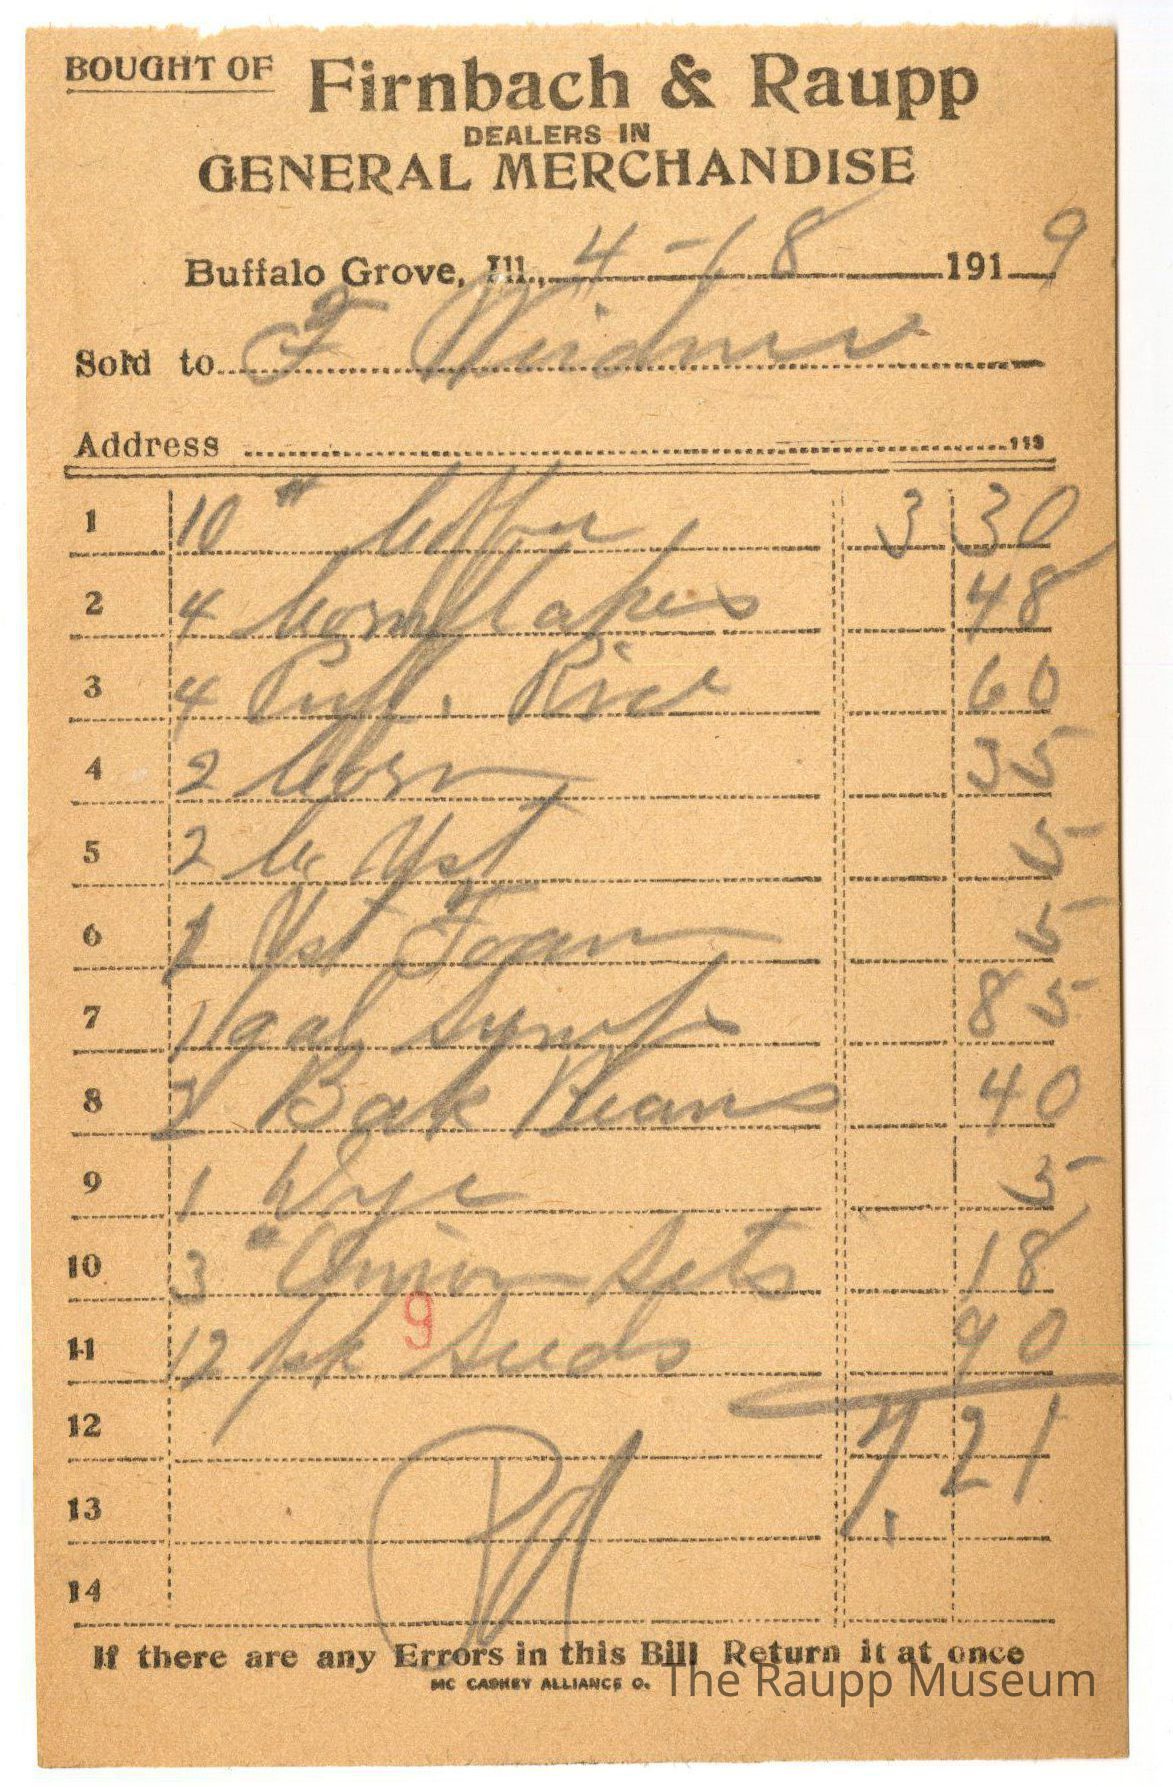 BOUGHT OF Firnbach & Raupp
DEALERS IN
GENERAL MERCHANDISE
Buffalo Grove, Ill., 4-18 1919
Sold to F Weidner
Address 113
1 10 # Coffee 3 30
2 4 Cornflakes 48
3 4 Puff. Rice 60
4 2 Corn 35
5 2 C. Yst 5
6 1 Yst Foam 5
7 1 gal Syrup 85
8 2 Bak Beans 40
9 1 5
10 3 # Onion Sets 18
11 12 pk Seeds 90
9
12 7.21
13
14
Pd
If there are any Errors in this Bill Return it at once
MC CASKEY ALLIANCE O.
The Raupp Museum